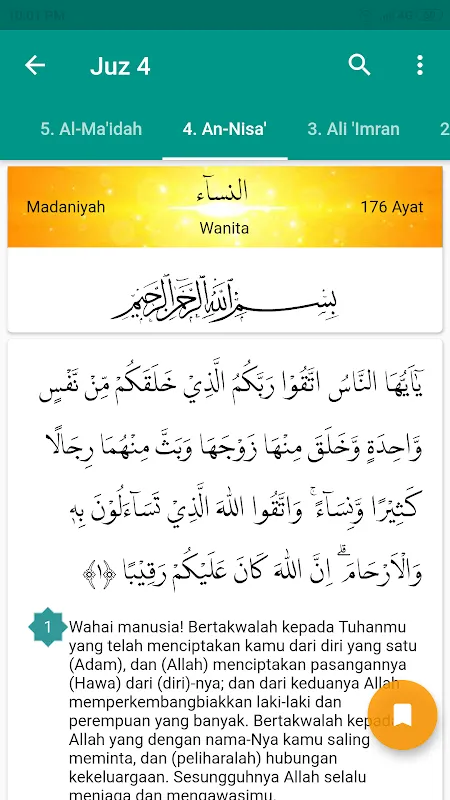 10:01 PM
Juz 4
5. Al-Ma'idah 4. An-Nisa' 3. Ali 'Imran 2
النساۤء
Madaniyah 176 Ayat
Wanita
بِسْمِ اللّٰهِ الرَّحْمٰنِ الرَّحِيْمِ
يٰٓاَيُّهَا النَّاسُ اتَّقُوْا رَبَّكُمُ الَّذِيْ خَلَقَكُمْ مِّنْ نَّفْسٍ
وَّاحِدَةٍ وَّخَلَقَ مِنْهَا زَوْجَهَا وَبَثَّ مِنْهُمَا رِجَالًا
كَثِيْرًا وَّنِسَاۤءً ۚ وَاتَّقُوا اللّٰهَ الَّذِيْ تَسَاۤءَلُوْنَ بِهٖ
وَالْاَرْحَامَ ۗ اِنَّ اللّٰهَ كَانَ عَلَيْكُمْ رَقِيْبًا ﴿١﴾
1 Wahai manusia! Bertakwalah kepada Tuhanmu
yang telah menciptakan kamu dari diri yang satu
(Adam), dan (Allah) menciptakan pasangannya
(Hawa) dari (diri)-nya; dan dari keduanya Allah
memperkembangbiakkan laki-laki dan
perempuan yang banyak. Bertakwalah kepada
Allah yang dengan nama-Nya kamu saling
meminta, dan (peliharalah) hubungan
kekeluargaan. Sesungguhnya Allah selalu
menjaga dan mengawasimu.